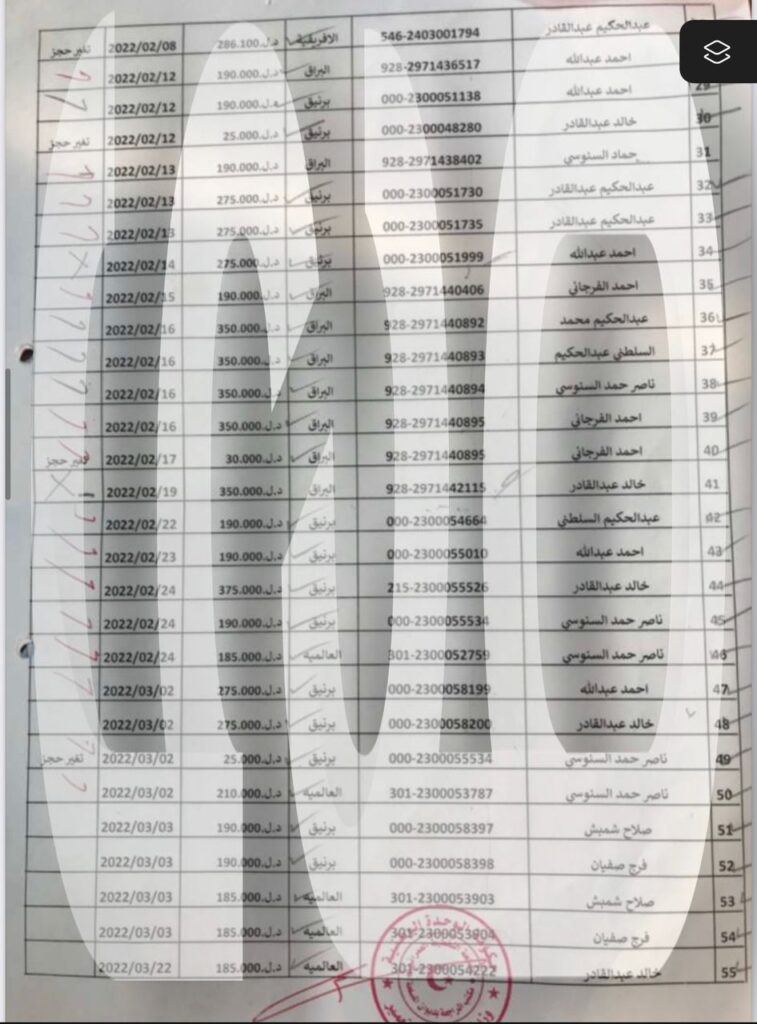 عبدالحكيم عبدالقادر 546-2403001794 الافريقية د.ل.286.100 2022/02/08 تغير حجز
احمد عبدالله 928-2971436517 البراق د.ل.190.000 2022/02/12
29 احمد عبدالله 000-2300051138 برنيق د.ل.190.000 2022/02/12
30 خالد عبدالقادر 000-2300048280 برنيق د.ل.25.000 2022/02/12 تغير حجز
31 حماد السنوسي 928-2971438402 البراق د.ل.190.000 2022/02/13
32 عبدالحكيم عبدالقادر 000-2300051730 برنيق د.ل.275.000 2022/02/13
33 عبدالحكيم عبدالقادر 000-2300051735 برنيق د.ل.275.000 2022/02/13
34 احمد عبدالله 000-2300051999 برنيق د.ل.275.000 2022/02/14
35 احمد الفرجاني 928-2971440406 البراق د.ل.190.000 2022/02/15
36 عبدالحكيم محمد 928-2971440892 البراق د.ل.350.000 2022/02/16
37 السلطني عبدالحكيم 928-2971440893 البراق د.ل.350.000 2022/02/16
38 ناصر حمد السنوسي 928-2971440894 البراق د.ل.350.000 2022/02/16
39 احمد الفرجاني 928-2971440895 البراق د.ل.350.000 2022/02/16
40 احمد الفرجاني 928-2971440895 البراق د.ل.30.000 2022/02/17 تغير حجز
41 خالد عبدالقادر 928-2971442115 البراق د.ل.350.000 2022/02/19
42 عبدالحكيم السلطني 000-2300054664 برنيق د.ل.190.000 2022/02/22
43 احمد عبدالله 000-2300055010 برنيق د.ل.190.000 2022/02/23
44 خالد عبدالقادر 215-2300055526 برنيق د.ل.375.000 2022/02/24
45 ناصر حمد السنوسي 000-2300055534 برنيق د.ل.190.000 2022/02/24
46 ناصر حمد السنوسي 301-2300052759 العالميه د.ل.185.000 2022/02/24
47 احمد عبدالله 000-2300058199 برنيق د.ل.275.000 2022/03/02
48 خالد عبدالقادر 000-2300058200 برنيق د.ل.275.000 2022/03/02
49 ناصر حمد السنوسي 000-2300055534 برنيق د.ل.25.000 2022/03/02 تغير حجز
50 ناصر حمد السنوسي 301-2300053787 العالميه د.ل.210.000 2022/03/02
51 صلاح شمبش 000-2300058397 برنيق د.ل.190.000 2022/03/03
52 فرج صفيان 000-2300058398 برنيق د.ل.190.000 2022/03/03
53 صلاح شمبش 301-2300053903 العالميه د.ل.185.000 2022/03/03
54 فرج صفيان 301-2300053904 العالميه د.ل.185.000 2022/03/03
55 خالد عبدالقادر 301-2300054222 العالميه د.ل.185.000 2022/03/22